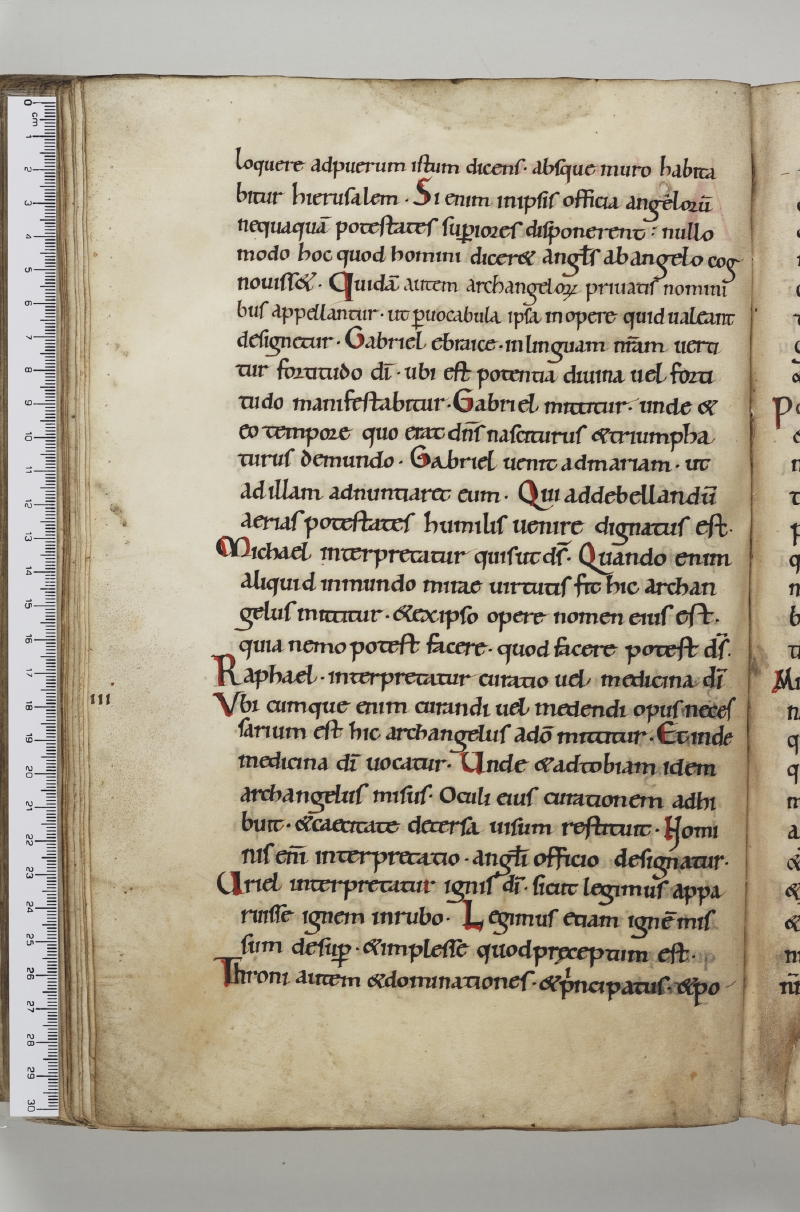 loquere adpuerum istum dicens · absque muro habita
bitur hierusalem · Si enim inipsis officia angeloꝝū
nequaquā potestates suꝑiores disponerent : nullo
modo hoc quod homini dicer& angľs abangelo cog
nouiss& · Quidā autem archangeloꝝ priuatis nomini
bus appellantur · ut ꝑuocabula ipsa inopere quid ualeant
designetur · Gabriel ebraice · inlinguam nr̄am uerti
tur fortitudo dī · ubi est potentia diuina uel forti
tudo manifestabitur · Gabriel mittitur · unde &
eo tempore quo erat dn̄s nasciturus &triumpha
turus demundo · Gabriel uenit admariam · ut
ad illam adnuntiaret eum · Qui addebellandū
aerias potestates humilis uenire dignatus est ·
Michael interpretatur quisutds̄ · Quando enim
aliquid inmundo mirae uirtutis fit hic archan
gelus mittitur · &exipso opere nomen eius est ·
quia nemo potest facere · quod facere potest ds̄ ·
Raphael · interpretatur curatio uel medicina dī
III Vbi cumque enim curandi uel medendi opus neces
sarium est hic archangelus adō mittitur · Et inde
medicina dī uocatur · Unde &adtobiam idem
archangelus misus · Oculi eius curationem adhi
buit · &caecitate detersa uisum restituit · Homi
nis em̄ interpretatio · angľi officio designatur ·
Uriel interpretatur ignis dī · sicut legimus appa
ruisse ignem inrubo · Legimus etiam ignē mis
sum desuꝑ · &implesse quodpręceptum est ·
Throni autem &dominationes · &pͥncipatus · &po